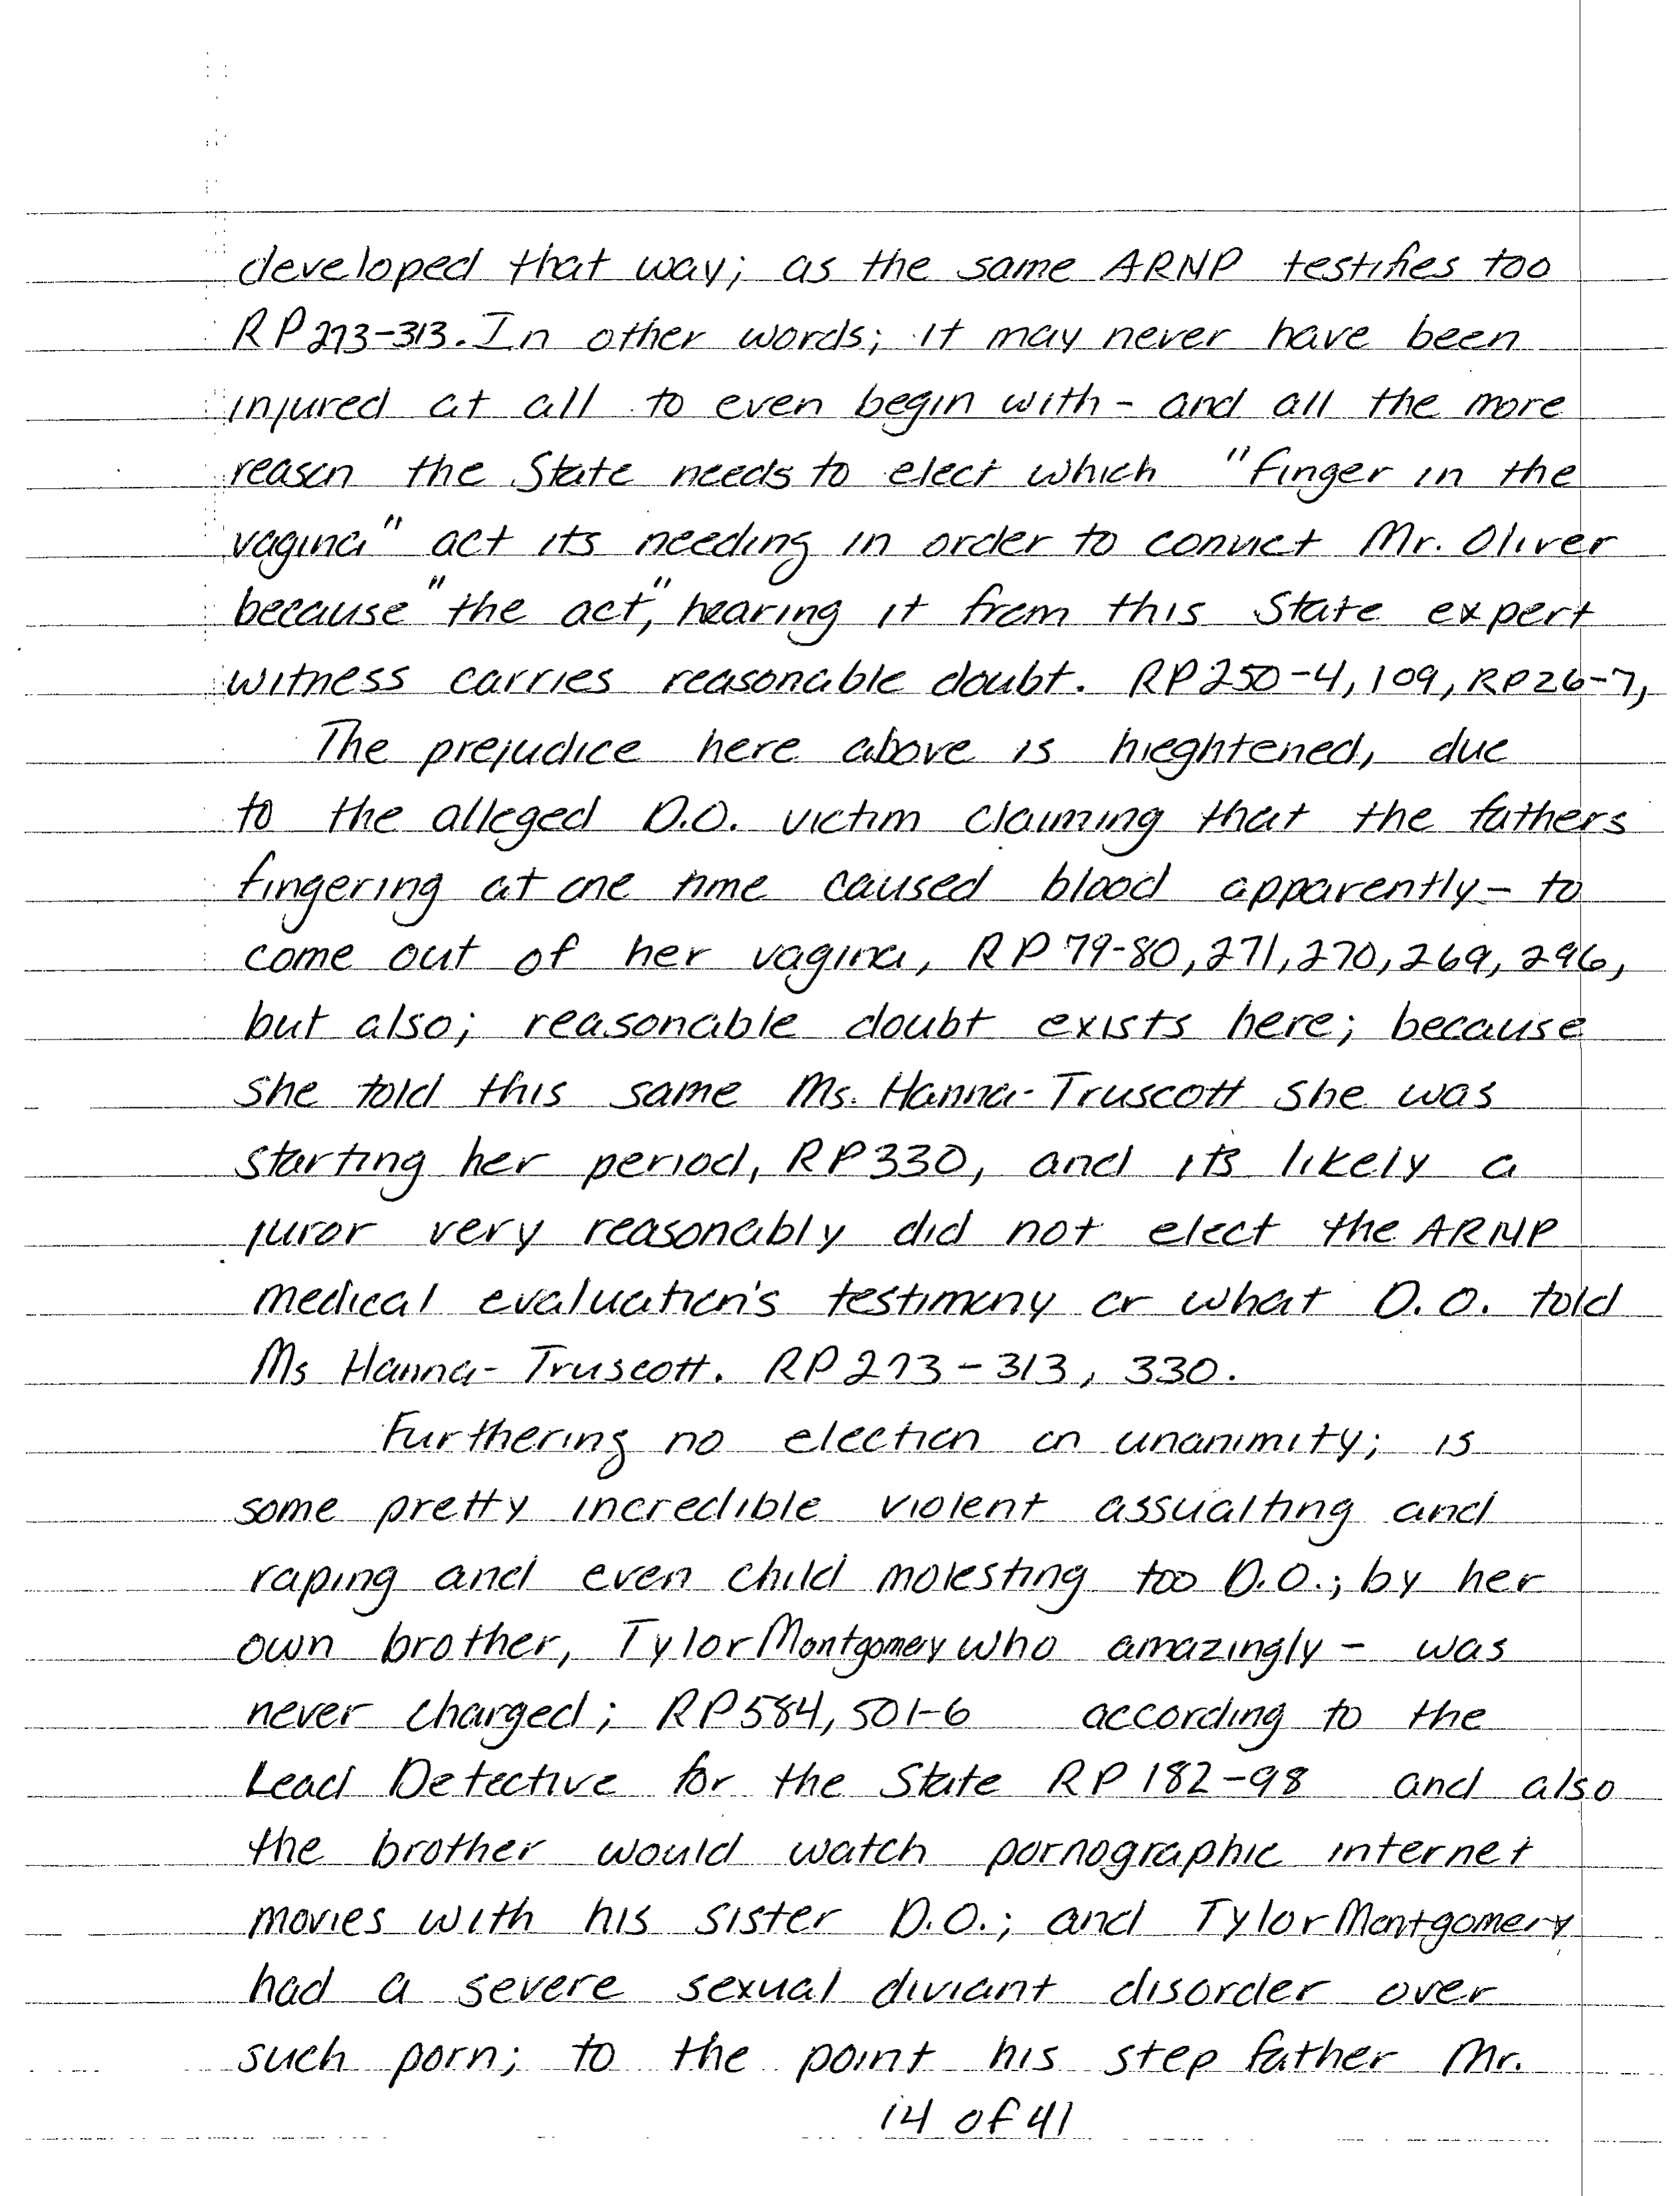 developed that way; as the same ARNP testifies too
RP273-313. In other words; it may never have been
injured at all to even begin with - and all the more
reason the State needs to elect which "finger in the
vagina" act its needing in order to convict Mr. Oliver
because "the act", hearing it from this State expert
witness carries reasonable doubt. RP250-4, 109, RP26-7,
The prejudice here above is hieghtened, due
to the alleged D.O. victim claiming that the fathers
fingering at one time caused blood apparently - to
come out of her vagina, RP79-80, 271, 270, 269, 296,
but also; reasonable doubt exists here; because
she told this same Ms. Hanna-Truscott she was
starting her period, RP330, and its likely a
juror very reasonably did not elect the ARNP
medical evaluation's testimony or what D.O. told
Ms Hanna-Truscott. RP273-313, 330.
Furthering no election on unanimity; is
some pretty incredible violent assualting and
raping and even child molesting too D.O.; by her
own brother, Tylor Montgomery who amazingly - was
never charged; RP584, 501-6 according to the
Lead Detective for the State RP182-98 and also
the brother would watch pornographic internet
movies with his sister D.O.; and Tylor Montgomery
had a severe sexual diviant disorder over
such porn; to the point his step father Mr.
14 of 41